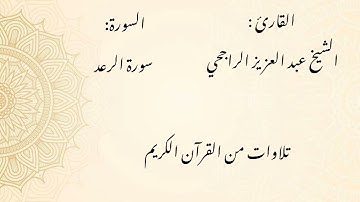 القارئ : السورة:
الشيخ عبد العزيز الراجحي سورة الرعد
تلاوات من القرآن الكريم